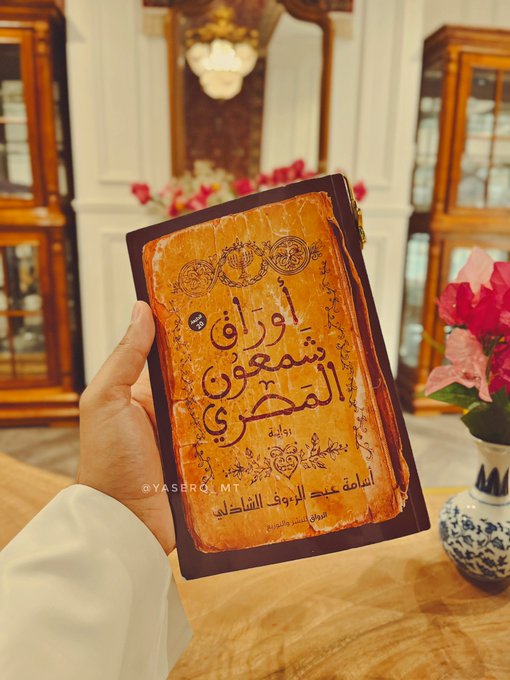 أوراق
شمعون
المصري
رواية
أسامة عبد الرءوف الشاذلي
الرواق للنشر والتوزيع
الطبعة
20
@YASERQ_MT